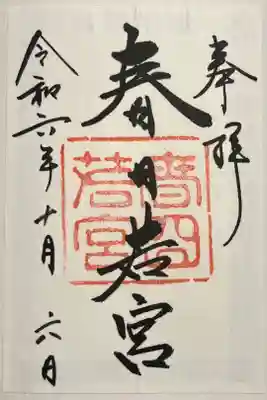 奉拝
春日若宮
春日若宮
令和六年十月六日